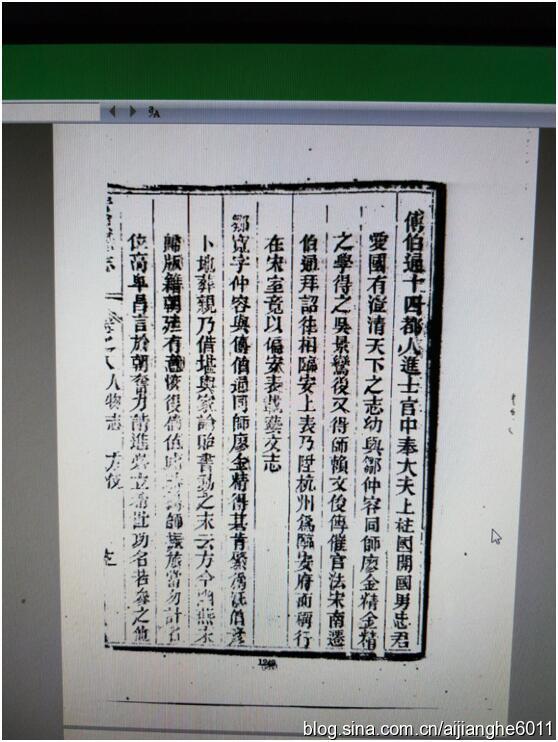 傅伯通十四都人進士官中奉大夫上柱國開國男忠君
愛國有澄清天下之志幼與鄒仲容同師廖金精金精
之學得之吳景鸞後又得師賴文俊傳催官法宋南遷
伯通拜詔徃相臨安上表乃陞杭州為臨安府而稱行
在宋室竟以偏安表載藝文志
鄒寬字仲容與傅伯通同師廖金精得其肯綮
卜地葬親乃借堪輿家論貽書勸之末云方今幽燕未
歸版籍朝廷有意恢復倘
師振旅當勿計名
位高卑昌言於朝奮力請進
功名若
人物志 方伎
1249
blog.sina.com.cn/aijianghe6011